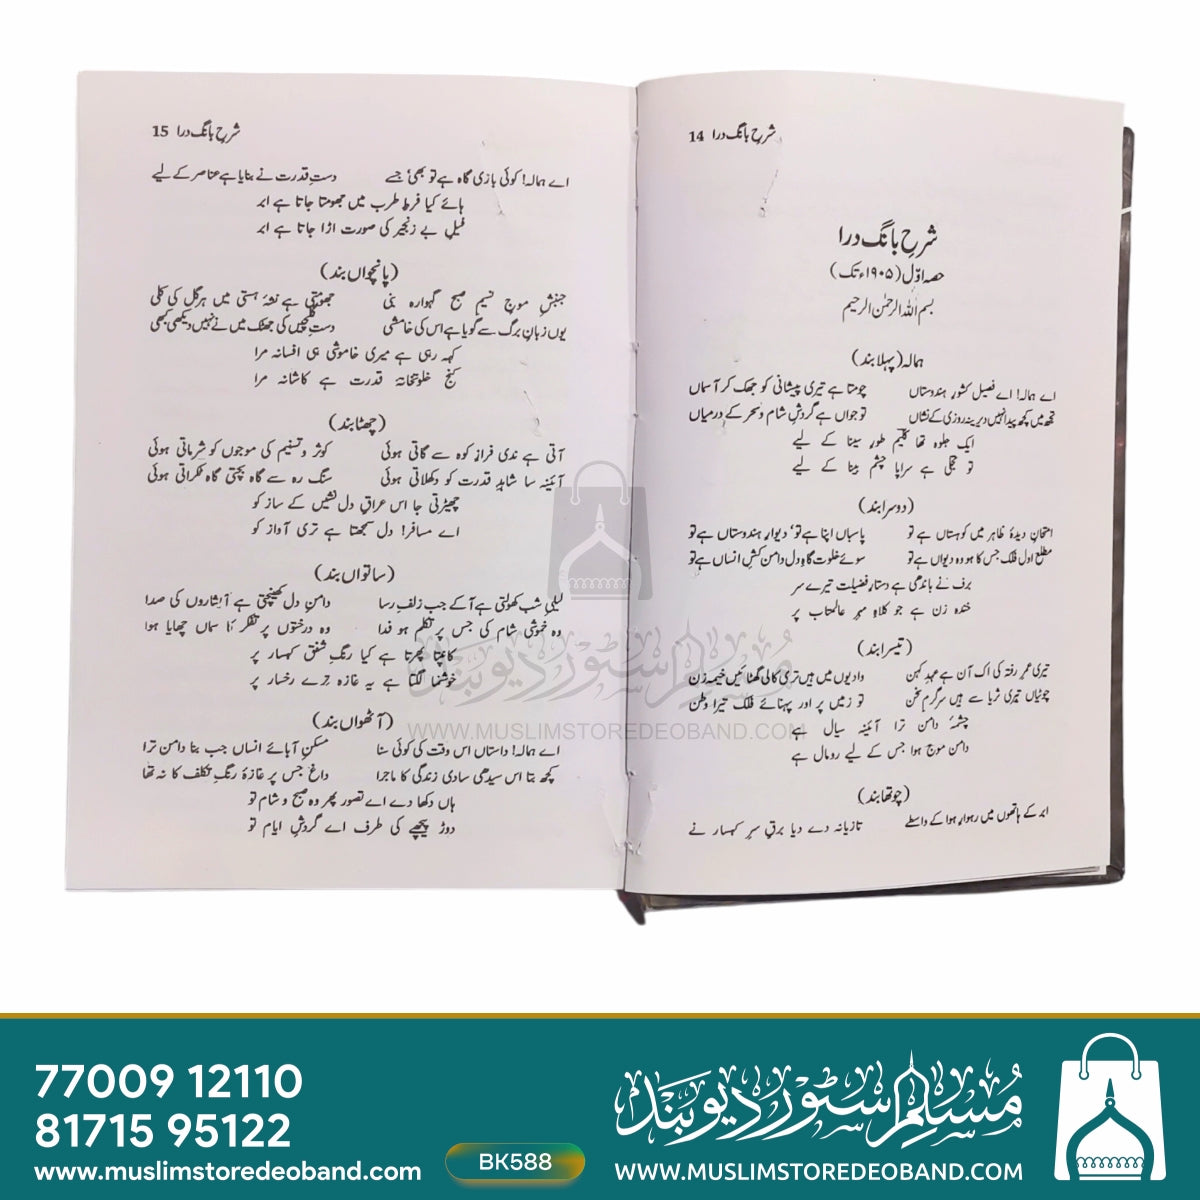 شرح بانگ درا 14
شرحِ بانگ درا
حصہ اوّل (۱۹۰۵ء تک)
بسم اللہ الرحمٰن الرحیم
ہمالہ (پہلا بند)
اے ہمالہ! اے فصیل کشورِ ہندوستاں چومتا ہے تیری پیشانی کو جھک کر آسماں
تجھ میں کچھ پیدا نہیں دیرینہ روزی کے نشاں تو جواں ہے گردشِ شام و سحر کے درمیاں
ایک جلوہ تھا کلیمِ طورِ سینا کے لیے
تو تجلی ہے سراپا چشمِ بینا کے لیے
(دوسرا بند)
امتحانِ دیدۂ ظاہر میں کوہستاں ہے تو پاسباں اپنا ہے تو، دیوارِ ہندوستاں ہے تو
مطلع اول فلک جس کا ہو وہ دیواں ہے تو سوئے خلوت گاہِ دل دامن کشِ انساں ہے تو
برف نے باندھی ہے دستارِ فضیلت تیرے سر
خندہ زن ہے جو کلاہِ مہرِ عالمتاب پر
(تیسرا بند)
تیری عمرِ رفتہ کی اک آن ہے عہدِ کہن وادیوں میں ہیں تری کالی گھٹائیں خیمہ زن
چوٹیاں تیری ثریا سے ہیں سرگرمِ سخن تو زمیں پر اور پہنائے فلک تیرا وطن
چشمۂ دامن ترا آئینۂ سیال ہے
دامن موج ہوا جس کے لیے رومال ہے
(چوتھا بند)
ابر کے ہاتھوں میں رہوارِ ہوا کے واسطے تازیانہ دے دیا برقِ سرِ کہسار نے
شرح بانگ درا 15
اے ہمالہ! کوئی بازی گاہ ہے تو بھی، جسے دستِ قدرت نے بنایا ہے عناصر کے لیے
ہائے کیا فرطِ طرب میں جھومتا جاتا ہے ابر
فیلِ بے زنجیر کی صورت اڑا جاتا ہے ابر
(پانچواں بند)
جنبشِ موجِ نسیمِ صبح گہوارہ بنی جھومتی ہے نشۂ ہستی میں ہر گل کی کلی
یوں زبانِ برگ سے گویا ہے اس کی خامشی دستِ گلچیں کی جھٹک میں نے نہیں دیکھی کبھی
کہہ رہی ہے میری خاموشی ہی افسانہ مرا
کنجِ خلوتخانۂ قدرت ہے کاشانہ مرا
(چھٹا بند)
آتی ہے ندی فرازِ کوہ سے گاتی ہوئی کوثر و تسنیم کی موجوں کو شرماتی ہوئی
آئینہ سا شاہدِ قدرت کو دکھلاتی ہوئی سنگِ رہ سے گاہ بچتی گاہ ٹکراتی ہوئی
چھیڑتی جا اس عراقِ دل نشیں کے ساز کو
اے مسافر! دل سمجھتا ہے تری آواز کو
(ساتواں بند)
لیلیِٰ شب کھولتی ہے آ کے جب زلفِ رسا دامنِ دل کھینچتی ہے آبشاروں کی صدا
وہ خموشی شام کی جس پر تکلم ہو فدا وہ درختوں پر تفکر کا سماں چھایا ہوا
کانپتا پھرتا ہے کیا رنگِ شفق کہسار پر
خوشنما لگتا ہے یہ غازہ ترے رخسار پر
(آٹھواں بند)
اے ہمالہ! داستاں اس وقت کی کوئی سنا مسکنِ آبائے انساں جب بنا دامن ترا
کچھ بتا اس سیدھی سادی زندگی کا ماجرا داغ جس پر غازۂ رنگِ تکلف کا نہ تھا
ہاں دکھا دے اے تصور پھر وہ صبح و شام تو
دوڑ پیچھے کی طرف اے گردشِ ایام تو
مسلم سٹور دیوبند
WWW.MUSLIMSTOREDEOBAND.COM
77009 12110
81715 95122
www.muslimstoredeoband.com
BK588
مسلم سٹور دیوبند
WWW.MUSLIMSTOREDEOBAND.COM